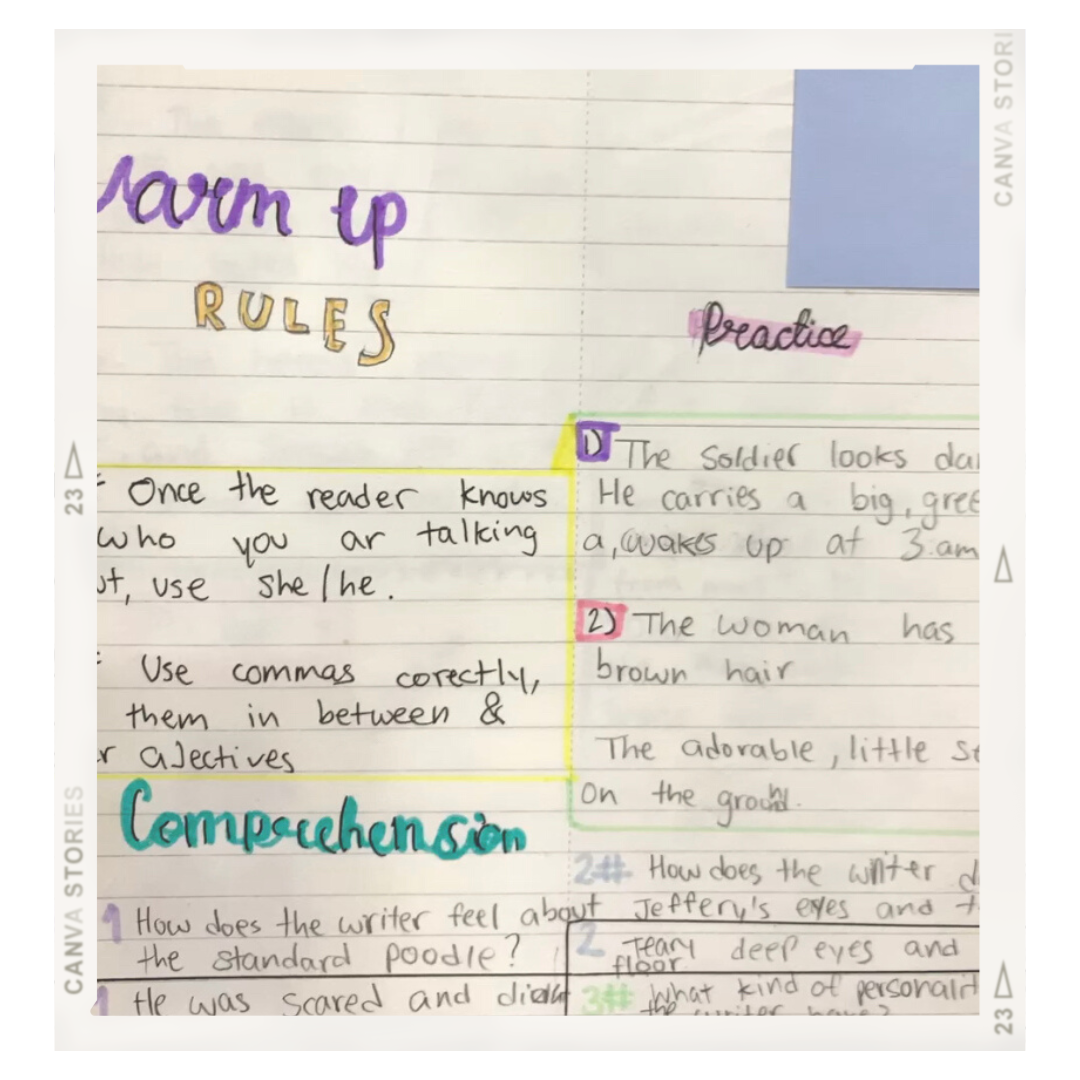 Warm up
RULES
Once the reader knows
who you ar talking
ut, use she/he.
Use commas corectly,
them in between &
r adjectives
Practice
1) The Soldier looks
He carries a big, gree
a, wakes up at 3:am
2) The woman has
brown hair
The adorable, little
on the ground.
Comprehension
1 How does the writer feel about
the standard poodle?
1 He was scared and didnt
2# How does the writer d
Jeffery's eyes and t
2 Teary deep eyes and
floor
3# What kind of personalit
the writer have?
CANVA STORIES
23
CANVA STORI
23